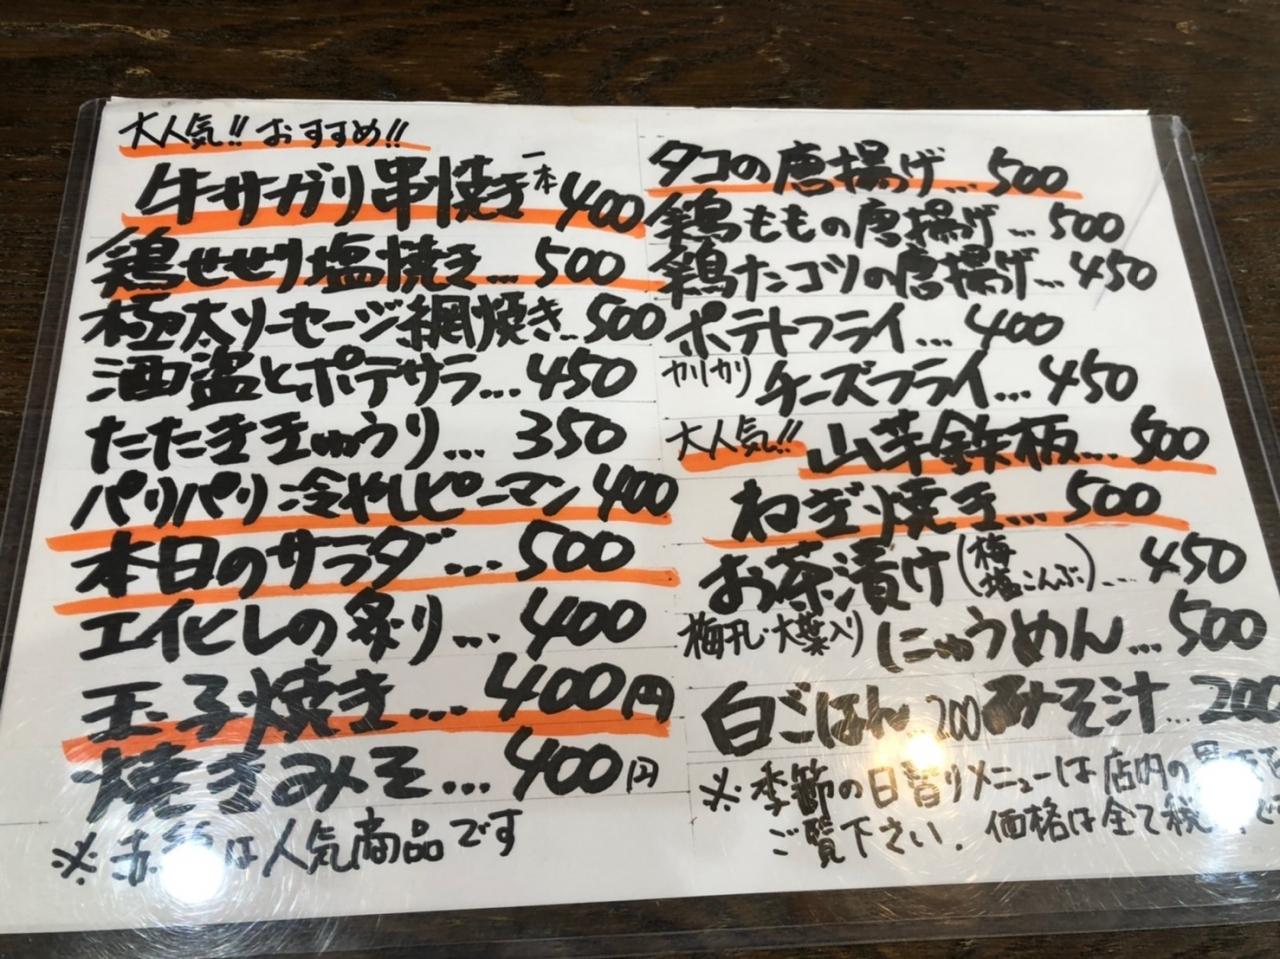 大人気!! おすすめ!!
牛サガリ串焼き 一本 400
鶏せせり塩焼き... 500
極太ソーセージ網焼き... 500
酒盗とポテサラ... 450
たたききゅうり... 350
パリパリ冷やしピーマン 400
本日のサラダ... 500
エイヒレの炙り... 400
玉子焼き... 400円
焼きみそ... 400円
※赤線は人気商品です
タコの唐揚げ... 500
鶏ももの唐揚げ... 500
鶏ナンコツの唐揚げ... 450
ポテトフライ... 400
カリカリ チーズフライ... 450
大人気!! 山芋鉄板... 500
ねぎ焼き... 500
お茶漬け(梅 塩こんぶ)... 450
梅干し・大葉入り にゅうめん... 500
白ごはん... 200 みそ汁... 200
※季節の日替りメニューは店内の
ご覧下さい。価格は全て税